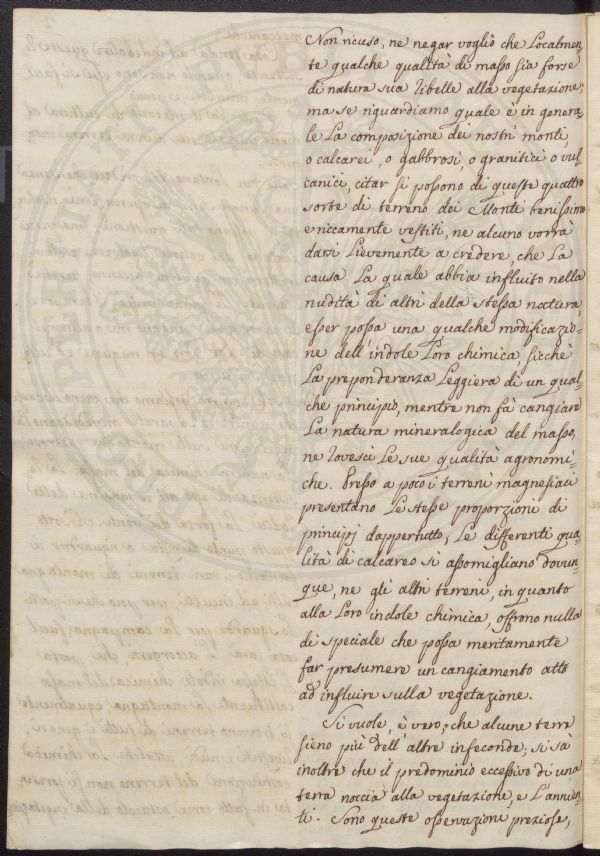 Non ricuso, ne negar voglio che Localmen=
te qualche qualità di masso sia forse
di natura sua ribelle alla vegetazione;
ma se riguardiamo quale è in genera=
le La composizione dei nostri monti,
o calcarei, o gabbrosi, o granitici o vul=
canici, citar si possono di queste quattro
sorte di terreno dei Monti benissimo
e riccamente vestiti, ne alcuno vorrà
darsi Lievemente a credere, che La
causa La quale abbia influito nella
nudità di altri della stessa natura,
esser possa una qualche modificazio=
ne dell'indole Loro chimica sicchè
La preponderanza Leggiera di un qual=
che principio, mentre non fà cangiare
La natura mineralogica del masso,
ne rovesci Le sue qualità agronomi=
che. Presso a poco i terreni magnesiaci
presentano Le stesse proporzioni di
principj dappertutto; Le differenti qua=
lità di calcareo si assomigliano dovun=
que, ne gli altri terreni, in quanto
alla Loro indole chimica, offrono nulla
di speciale che possa meritamente
far presumere un cangiamento atto
ad influire sulla vegetazione.
Si vuole, è vero, che alcune terre
sieno più dell'altre infeconde; si sà
inoltre che il predominio eccessivo di una
terra noccia alla vegetazione, e L'annien=
ti. Sono queste osservazioni preziose,